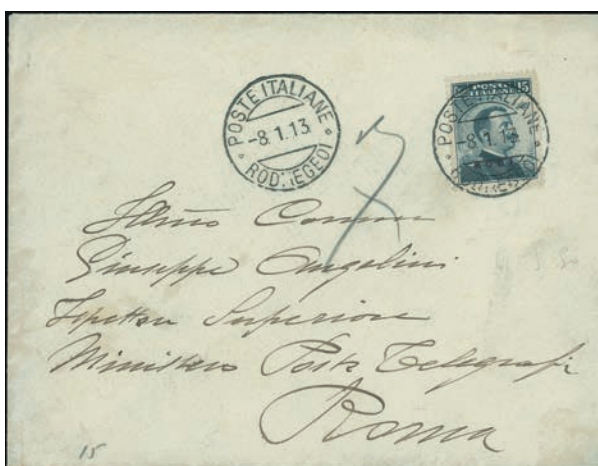 POSTE ITALIANE
-8.1.13
ROD. (EGEO)
POSTE ITALIANE 15
POSTE ITALIANE
-8.1.13
Giuseppe Angelini
Ispettore Superiore
Ministero Poste Telegrafi
Roma
15